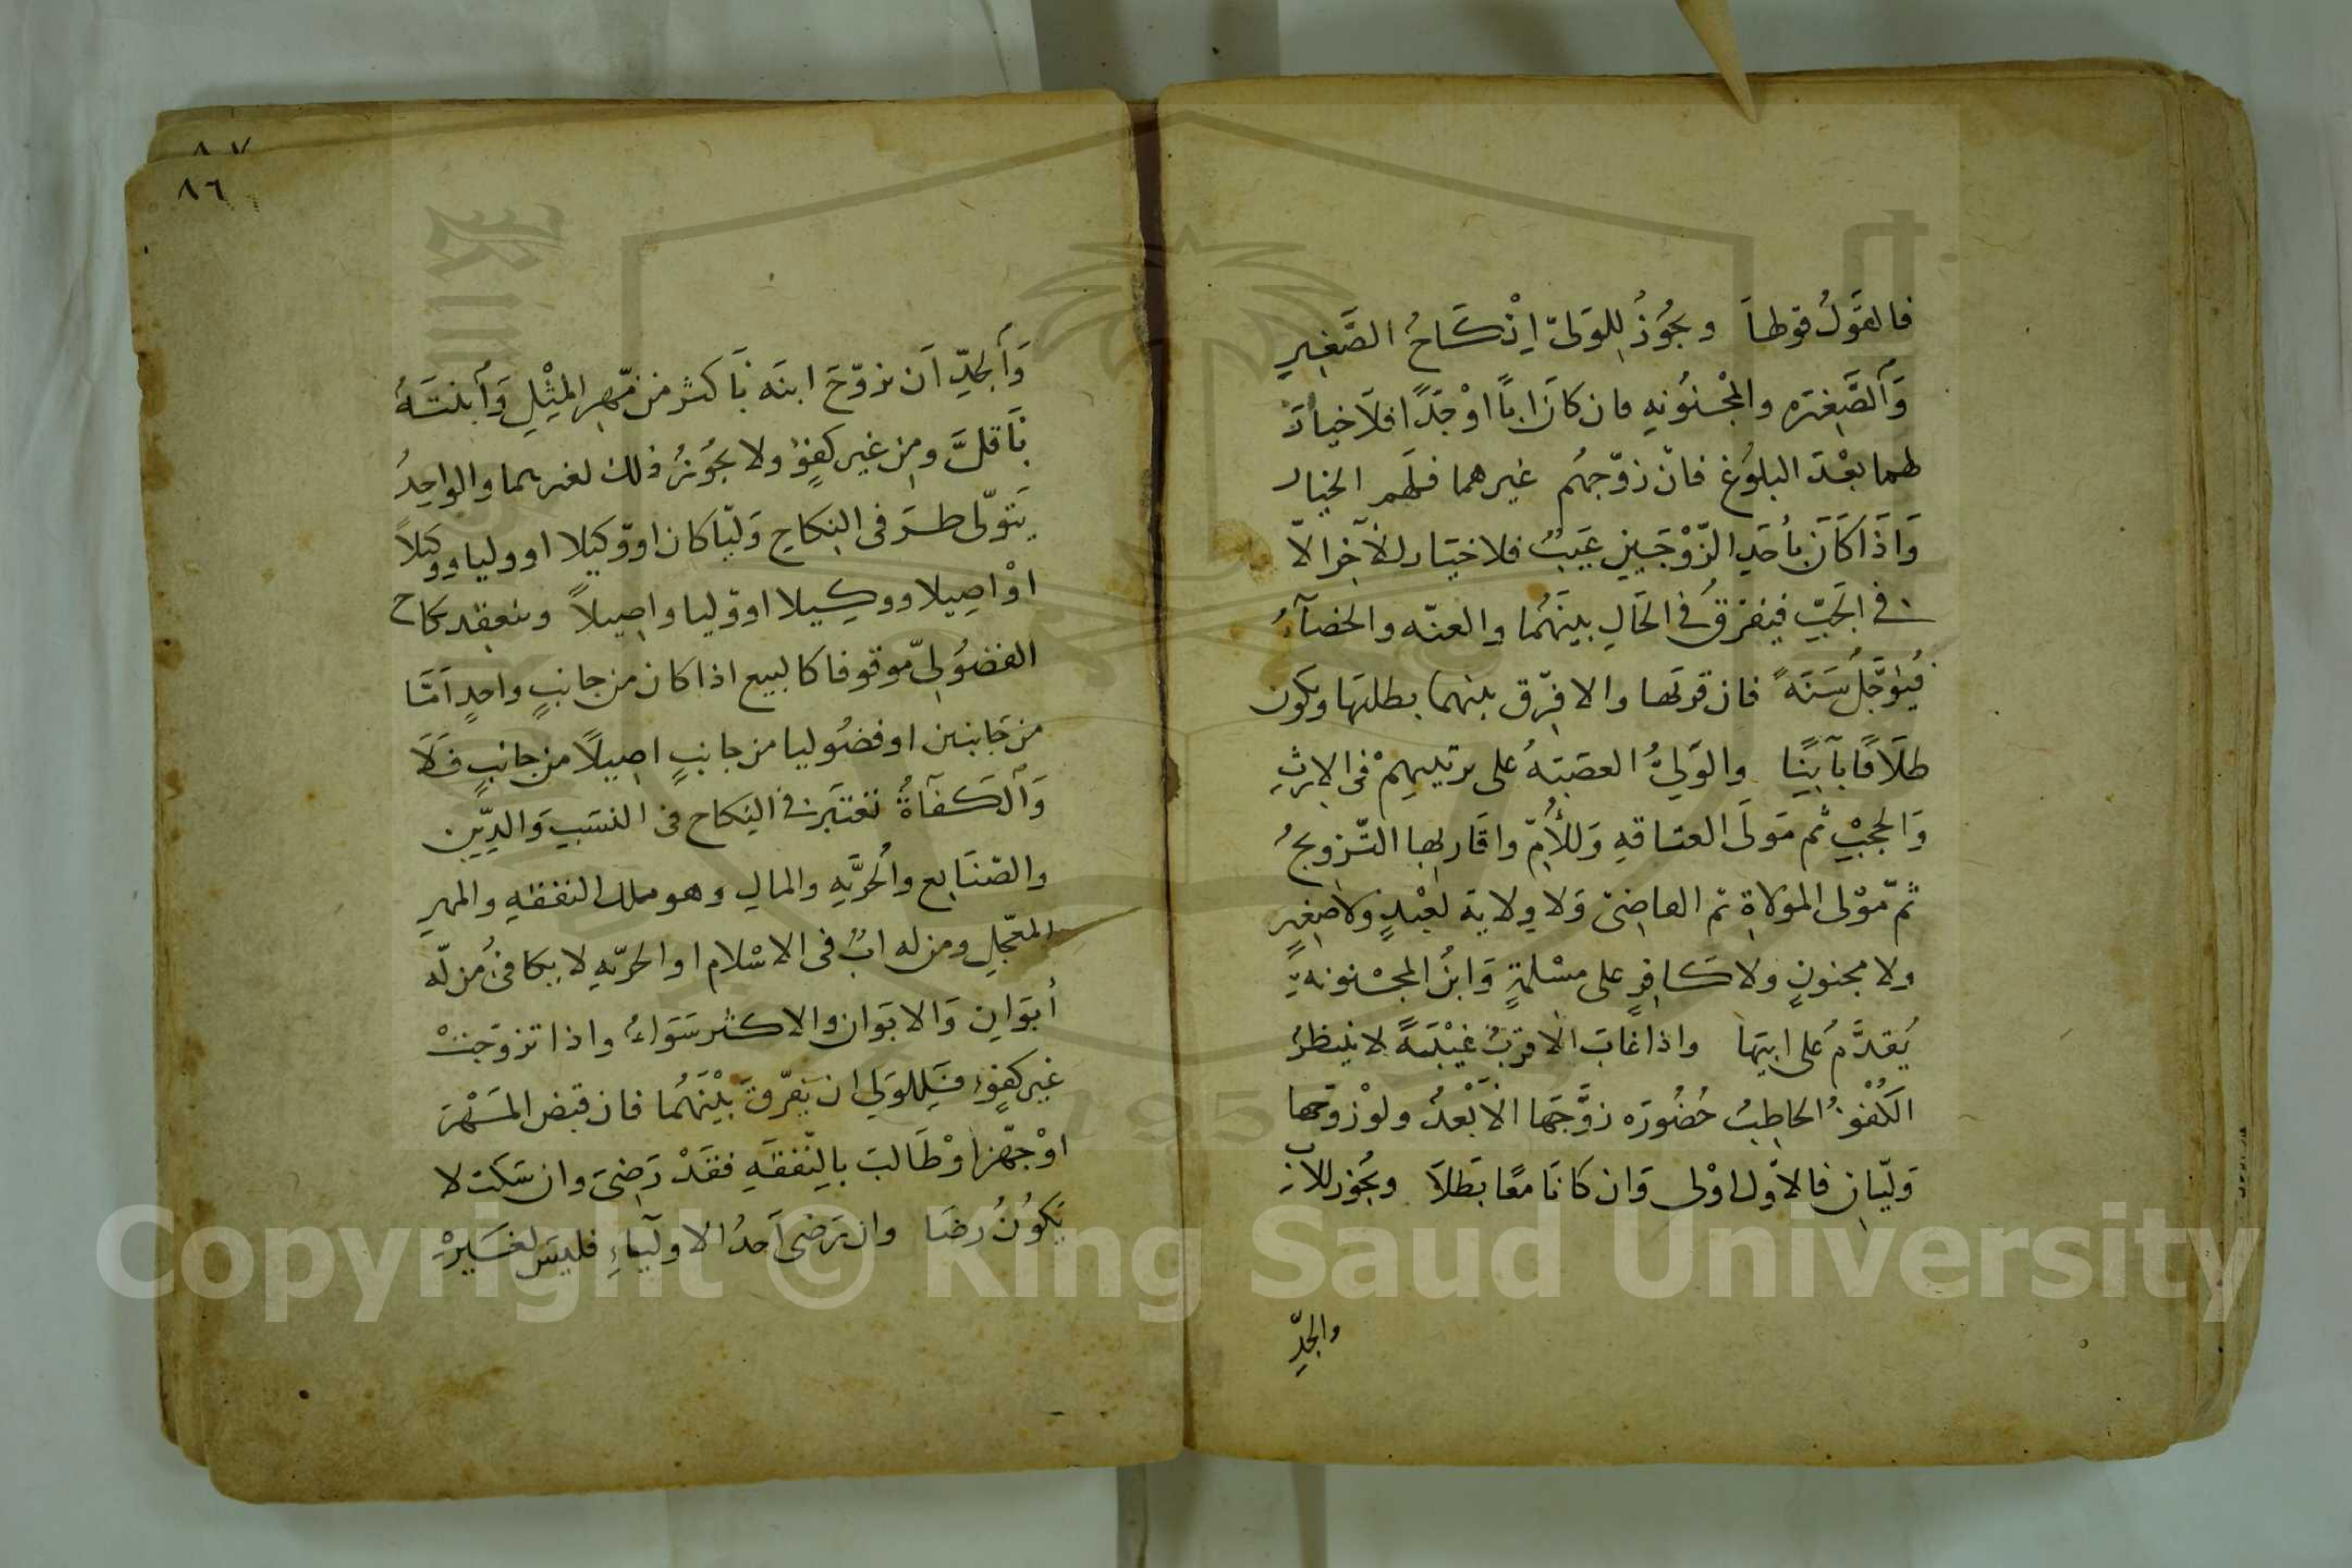 فالقَولُ قولها ويجُوز للوَليّ اِنْكَاحُ الصَّغير
وَالصَّغيره والمجْنُونه فان كانَ اباً اوْ جَدًا فلاَ خيارَ
لهما بعْدَ البلوُغ فانْ زوّجهُم غيرهما فلَهم الخيار
وَاذَا كَانَ بأحَدِ الزّوْجَيْنِ عَيبٌ فلا خيَار للآخر الاّ
في الجَبِّ فيفرقُ في الحَالِ بينَهُما والعنّه والخصَآءُ
فيُؤجَّلُ سَنَةً فان قربها والا فرّق بينهما بطلبها ويكون
طلَاقًا بآينًا والوَليُّ العصَبَةُ على ترتيبهِمْ في الارثِ
وَالحجْبِ ثم مَولَى العتاقهِ وَللأُمِّ واقَاربها التّزويجُ
ثمّ مَوْلى الموَلاةِ ثم القاضي وَلا ولاية لعَبْدٍ ولا صغيرٍ
ولا مجنونٍ ولا كَافرٍ على مسْلمةٍ وَابنُ المجْنونةِ
يُقدَّمُ على ابيهَا واذا غابَ الاقربُ غيْبَةً لا ينتظرُ
الكُفْؤُ الخاطِبُ حُضُورَه زوَّجَها الأبْعدُ ولوْ زوّجها
وَليّانِ فالاوّل اوْلى وَان كانَا معًا بَطلاَ ويجُوز للابِ
والجدِّ
٨٧
٨٦
وَالجدِّ اَن يزوّجَ ابنَه بأكثر من مّهر المثْلِ وَابنتَهُ
بأقلَّ ومِن غير كفؤٍ ولا يجُوزُ ذلك لغيرهما والواحِدُ
يَتوَلّى طرَفي النكاحِ وَليّا كان او وَكيلا او وليا ووكيلاً
اوْ اصِيلا ووكِيلا او وليا واصِيلاً وينعقد نكاح
الفضُوليّ موقوفا كالبيع اذا كان من جانبٍ واحدٍ اَمّا
من جَانبين او فضُوليا من جانبٍ اصِيلاً من جانبٍ فَلاَ
وَالكَفآةُ تعْتبَر في النكاح في النسَبِ وَالدِّينِ
والصّنَايع والحُرّيَّهِ والمالِ وهو ملك النفقهِ والمهرِ
المعَجّلِ ومن له ابٌ في الاسْلام او الحرّيّهِ لا يكافئُ من لّه
أبوَانِ وَالابوَان والاكثر سَوَاءُ واذا تزوّجَتْ
غير كفؤٍ فَلِلوَلي ان يَفرّقَ بيْنهُما فان قبض المَهْرَ
اوْ جهّز اوْ طَالبَ بالنّفقهِ فقَدْ رَضيَ وان سَكت لا
يَكوُنُ رضَا وان رَضى اَحدُ الاوليآءِ فليسَ لغَيرْهِ
Copyright © King Saud University